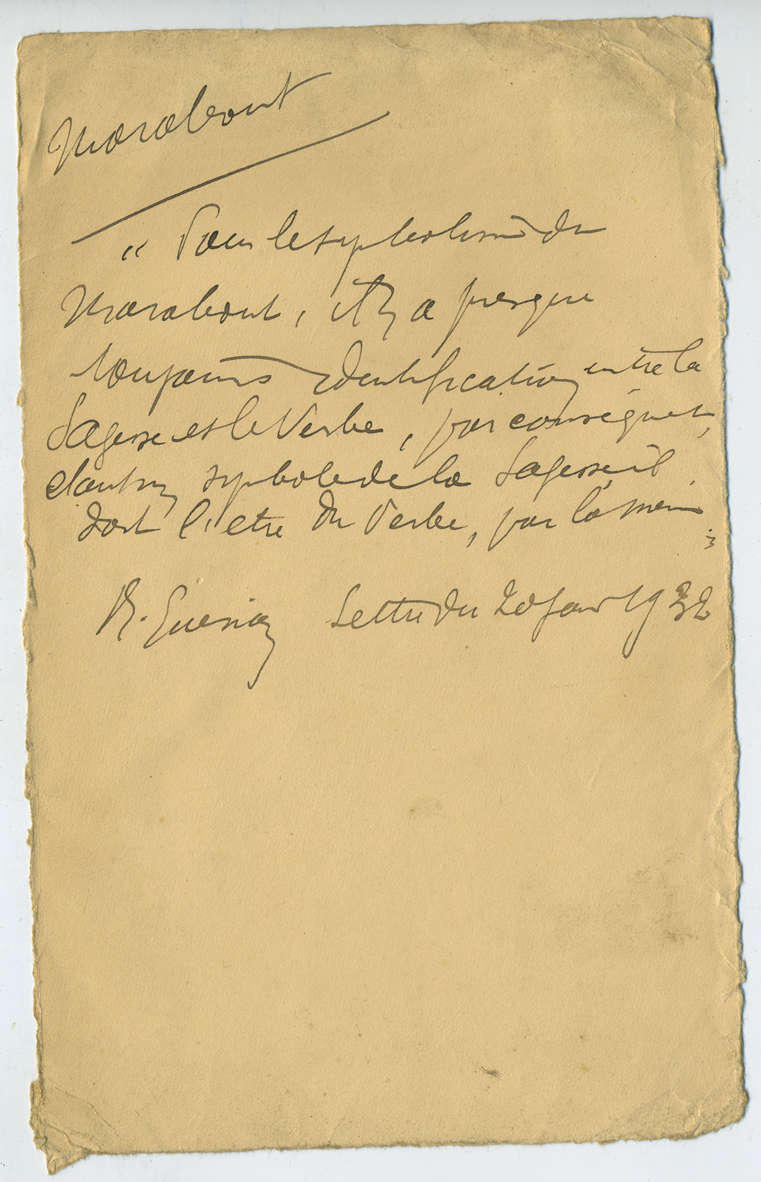 Marabout
" Pour le symbolisme du
Marabout, il y a presque
toujours identification entre la
Sagesse et le Verbe, par conséquent,
étant symbole de la Sagesse il
doit l'être du Verbe, par là même
R. Guénon Lettre du 20 janv 1932